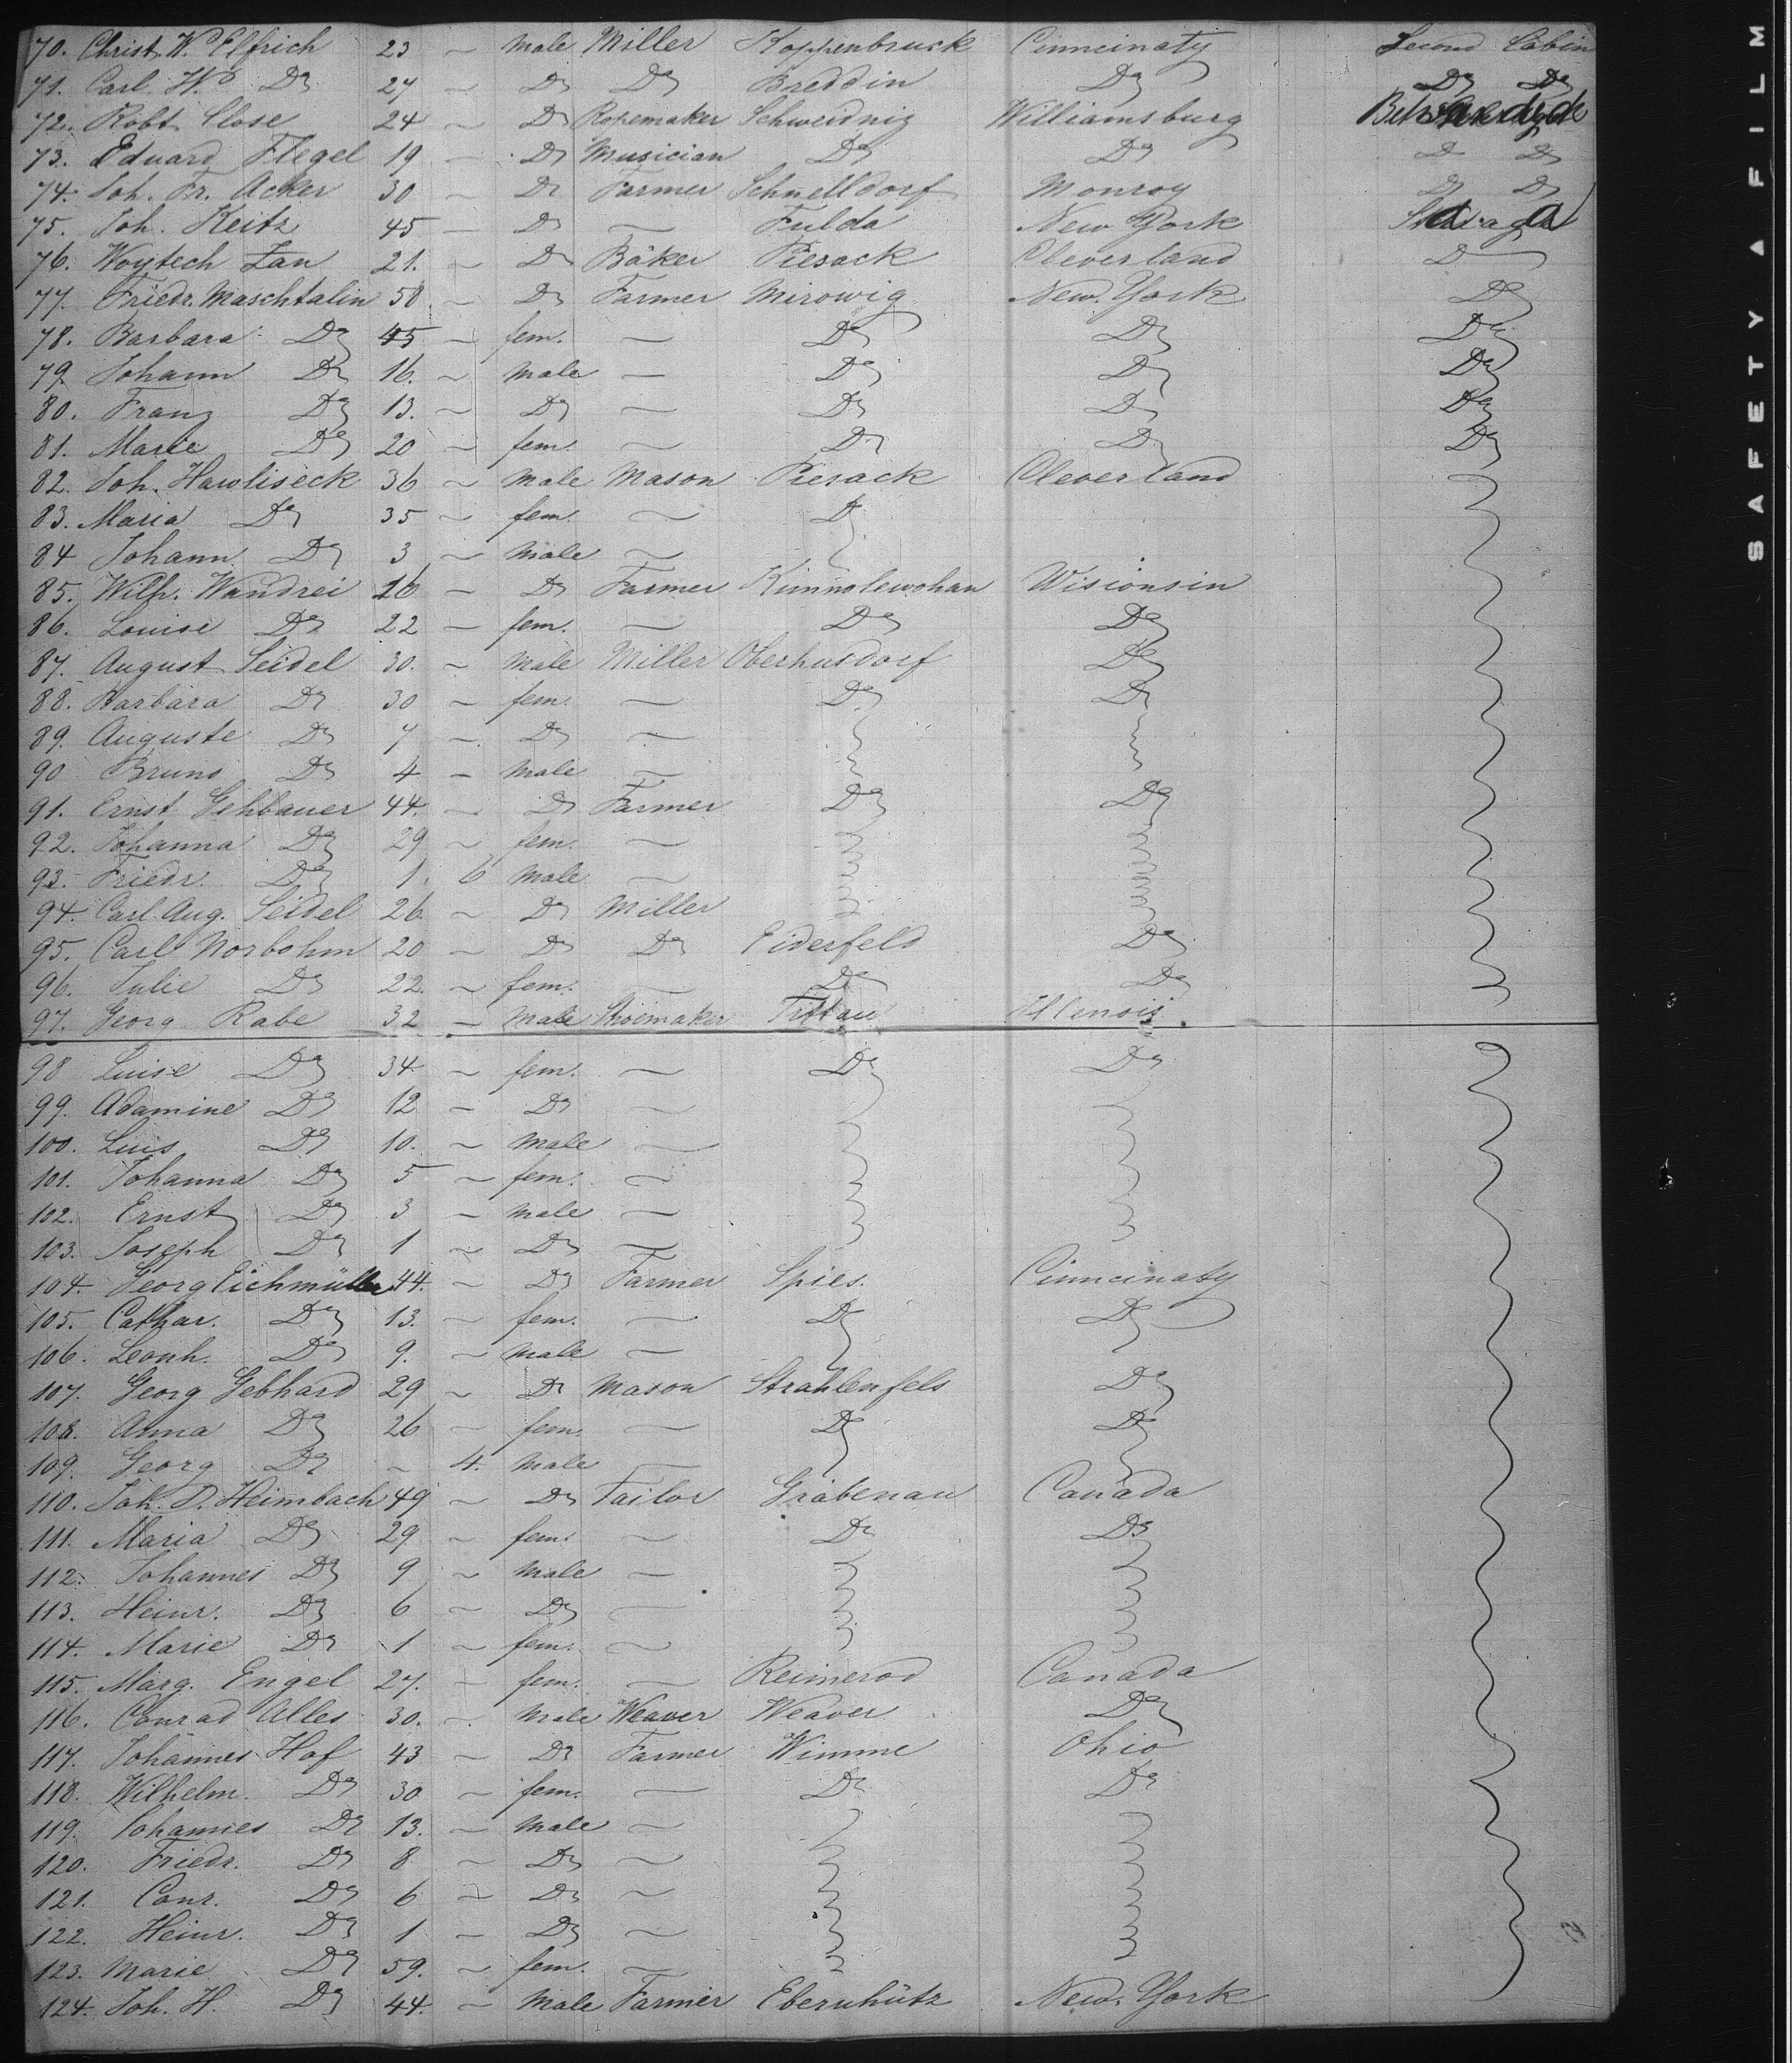 70. Christ. W. Elfrich 23 ~ male Miller Koppenbruck Cinncinaty Second Cabin
71. Carl H. Do 27 ~ Do Do Breddin Do Do Do
72. Robt. Close 24 ~ Do Ropemaker Schweidnig Williamsburg
73. Eduard Flegel 19 ~ Do Musician Do Do Do Do
74. Joh. Fr. Acker 30 ~ Do Farmer Schnelldorf Monroy Do Do
75. Joh. Keitz 45 ~ Do ~ Fulda New York
76. Woytech Zan 21. ~ Do Bäker Piesack Cleverland Do
77. Friedr. Maschtalin 50 ~ Do Farmer Mirowig New York Do
78. Barbara Do 45 ~ fem. ~ Do Do Do
79. Johann Do 16. ~ male ~ Do Do Do
80. Franz Do 13. ~ Do ~ Do Do Do
81. Marie Do 20 ~ fem. ~ Do Do Do
82. Joh. Hawliseck 36 ~ male Mason Piesack Cleverland
83. Maria Do 35 ~ fem. ~ Do
84 Johann Do 3 ~ male ~
85. Wilh. Wandrei 26 ~ Do Farmer Wisionsin
86. Louise Do 22 ~ fem. ~ Do Do
87. August Seidel 30. ~ male Miller Oberhusdorf Do
88. Barbara Do 30 ~ fem. ~ Do Do
89. Auguste Do 7 ~ Do ~
90 Bruno Do 4 ~ male ~
91. Ernst Gehbauer 44. ~ Do Farmer Do Do
92. Johanna Do 29 ~ fem. ~
93. Friedr. Do 1. 6 male ~
94. Carl Aug. Seidel 26. ~ Do Miller
95. Carl Norbohm 20 ~ Do Do Eiderfeld Do
96. Julie Do 22. ~ fem. ~ Do Do
97. Georg Rabe 32 ~ male Shoemaker Tittau Illenois
98 Luise Do 34 ~ fem. ~ Do Do
99. Adamine Do 12 ~ Do ~
100. Luis Do 10. ~ male ~
101. Johanna Do 5 ~ fem. ~
102. Ernst Do 3 ~ male ~
103. Joseph Do 1 ~ Do ~
104. Georg Eichmüller 44. ~ Do Farmer Spies. Cinncinaty
105. Cathar. Do 13. ~ fem. ~ Do Do
106. Leonh. Do 9. ~ male ~
107. Georg Gebhard 29 ~ Do Mason Strahlenfels Do
108. Anna Do 26 ~ fem. ~ Do Do
109. Georg Do ~ 4. male ~
110. Joh. P. Heimbach 49 ~ Do Tailor Gräbenau Canada
111. Maria Do 29 ~ fem. ~ Do Do
112. Johannes Do 9 ~ male ~
113. Heinr. Do 6 ~ Do ~
114. Marie Do 1 ~ fem. ~
115. Marg. Engel 27. ~ fem. ~ Reimerod Canada
116. Conrad Alles 30. ~ male Weaver Weaver Do
117. Johannes Hof 43 ~ Do Farmer Wimme Ohio
118. Wilhelm. Do 30 ~ fem. ~ Do Do
119. Johannes Do 13. ~ male ~
120. Friedr. Do 8 ~ Do ~
121. Conr. Do 6 ~ Do ~
122. Heinr. Do 1 ~ Do ~
123. Marie Do 59. ~ fem. ~
124. Joh. H. Do 44. ~ male Farmer Ebernhütz New York
SAFETY ▲ FILM